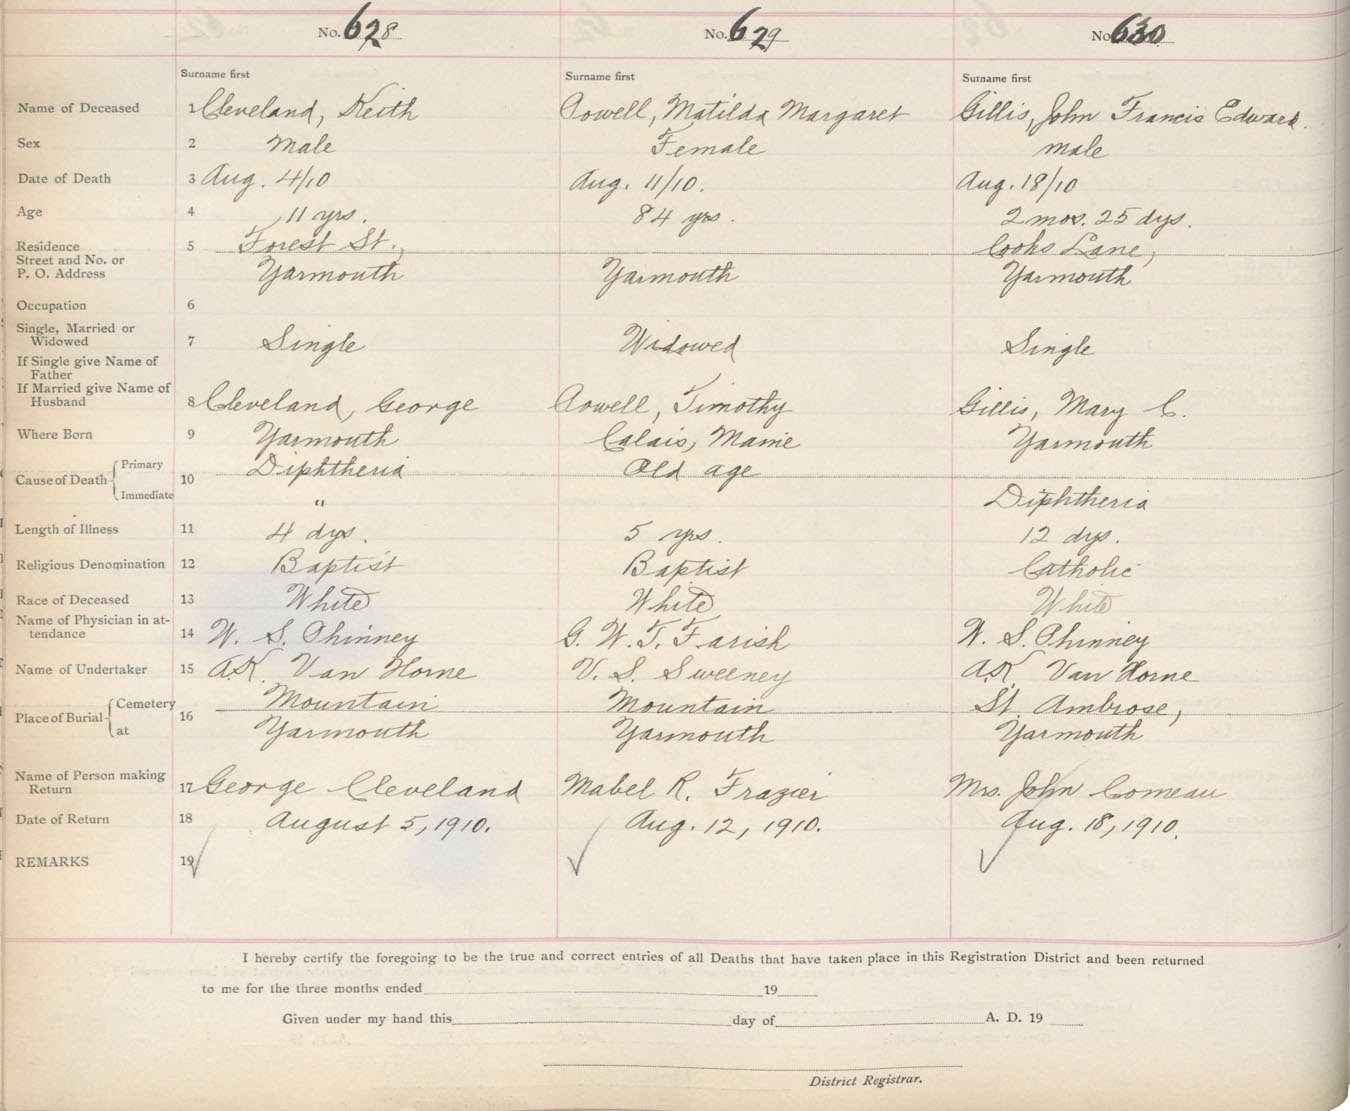 No. 628 No. 629 No. 630
Surname first Surname first Surname first
Name of Deceased 1 Cleveland, Keith Powell, Matilda Margaret Gillis, John Francis Edward.
Sex 2 Male Female male
Date of Death 3 Aug. 4/10 Aug. 11/10. Aug. 18/10
Age 4 11 yrs. 84 yrs. 2 mos. 25 dys.
Residence 5 Forest St., Cooks Lane,
Street and No. or
P. O. Address Yarmouth Yarmouth Yarmouth
Occupation 6
Single, Married or
Widowed 7 Single Widowed Single
If Single give Name of
Father
If Married give Name of
Husband 8 Cleveland, George Powell, Timothy Gillis, Mary C.
Where Born 9 Yarmouth Calais, Maine Yarmouth
Cause of Death Primary 10 Diphtheria Old age
Immediate " Diphtheria
Length of Illness 11 4 dys. 5 yrs. 12 dys.
Religious Denomination 12 Baptist Baptist Catholic
Race of Deceased 13 White White White
Name of Physician in at-
tendance 14 W. S. Phinney G. W. T. Farish W. S. Phinney
Name of Undertaker 15 A.K. Van Horne V. S. Sweeney A.K. Van Horne
Place of Burial Cemetery 16 Mountain Mountain St. Ambrose,
at Yarmouth Yarmouth Yarmouth
Name of Person making
Return 17 George Cleveland Mabel R. Frazier Mrs. John Comeau
Date of Return 18 August 5, 1910. Aug. 12, 1910. Aug. 18, 1910.
REMARKS 19
I hereby certify the foregoing to be the true and correct entries of all Deaths that have taken place in this Registration District and been returned
to me for the three months ended 19
Given under my hand this day of A. D. 19
District Registrar.